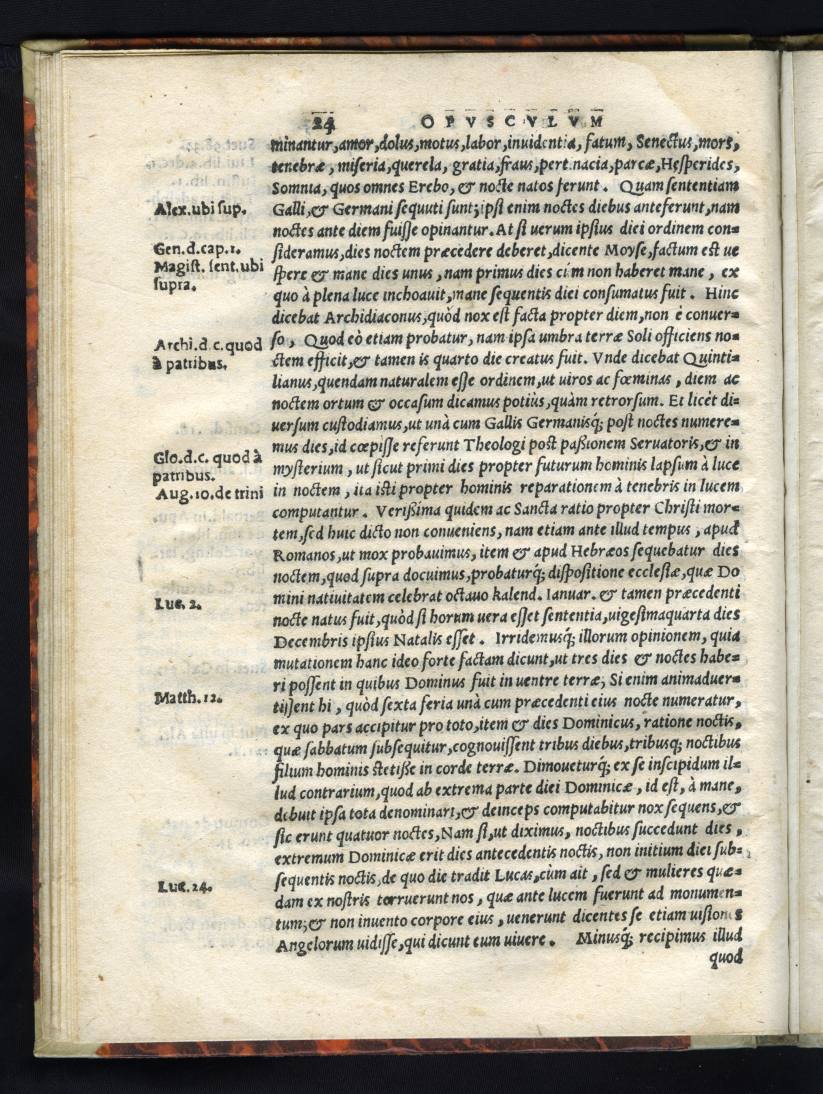 24 OPVSCVLVM
minantur, amor, dolus, motus, labor, inuidentia, fatum, Senectus, mors,
tenebræ, miseria, querela, gratia, fraus, pertinacia, parcæ, Hesperides,
Somnia, quos omnes Erebo, & nocte natos ferunt. Quam sententiam
Alex. ubi sup.
Galli, & Germani sequuti sunt; ipsi enim noctes diebus anteferunt, nam
noctes ante diem fuisse opinantur. At si uerum ipsius diei ordinem con=
Gen. d. cap. 1.
sideramus, dies noctem præcedere deberet, dicente Moyse, factum est ue
Magist. sent. ubi
spere & mane dies unus, nam primus dies cùm non haberet mane, ex
supra.
quo à plena luce inchoauit, mane sequentis diei consumatus fuit. Hinc
dicebat Archidiaconus, quòd nox est facta propter diem, non è conuer=
Archi. d. c. quod
so, Quod eò etiam probatur, nam ipsa umbra terræ Soli officiens no=
à patribus.
ctem efficit, & tamen is quarto die creatus fuit. Vnde dicebat Quinti=
lianus, quendam naturalem esse ordinem, ut uiros ac fœminas, diem ac
noctem ortum & occasum dicamus potiùs, quàm retrorsum. Et licèt di=
uersum custodiamus, ut unà cum Gallis Germanisq́; post noctes numere=
Glo. d. c. quod à
mus dies, id cœpisse referunt Theologi post paßionem Seruatoris, & in
patribus.
mysterium, ut sicut primi dies propter futurum hominis lapsum à luce
Aug. 10. de trini
in noctem, ita isti propter hominis reparationem à tenebris in lucem
computantur. Verißima quidem ac Sancta ratio propter Christi mor=
tem, sed huic dicto non conueniens, nam etiam ante illud tempus, apud
Romanos, ut mox probauimus, item & apud Hebræos sequebatur dies
noctem, quod supra docuimus, probaturq́; dispositione ecclesiæ, quæ Do
Luc. 2.
mini natiuitatem celebrat octauo kalend. Ianuar. & tamen præcedenti
nocte natus fuit, quòd si horum uera esset sententia, uigesimaquarta dies
Decembris ipsius Natalis esset. Irridemusq́; illorum opinionem, quia
mutationem hanc ideo forte factam dicunt, ut tres dies & noctes habe=
Matth. 12.
ri possent in quibus Dominus fuit in uentre terræ; Si enim animaduer=
tissent hi, quòd sexta feria unà cum præcedenti eius nocte numeratur,
ex quo pars accipitur pro toto, item & dies Dominicus, ratione noctis,
quæ sabbatum subsequitur, cognouissent tribus diebus, tribusq́; noctibus
filium hominis stetiße in corde terræ. Dimoueturq́; ex se inscipidum il=
lud contrarium, quod ab extrema parte diei Dominicæ, id est, à mane,
debuit ipsa tota denominari, & deinceps computabitur nox sequens, &
sic erunt quatuor noctes, Nam si, ut diximus, noctibus succedunt dies,
extremum Dominicæ erit dies antecedentis noctis, non initium diei sub=
Luc. 24.
sequentis noctis, de quo die tradit Lucas, cùm ait, sed & mulieres quæ=
dam ex nostris terruerunt nos, quæ ante lucem fuerunt ad monumen=
tum; & non inuento corpore eius, uenerunt dicentes se etiam uisiones
Angelorum uidisse, qui dicunt eum uiuere. Minusq́; recipimus illud
quod